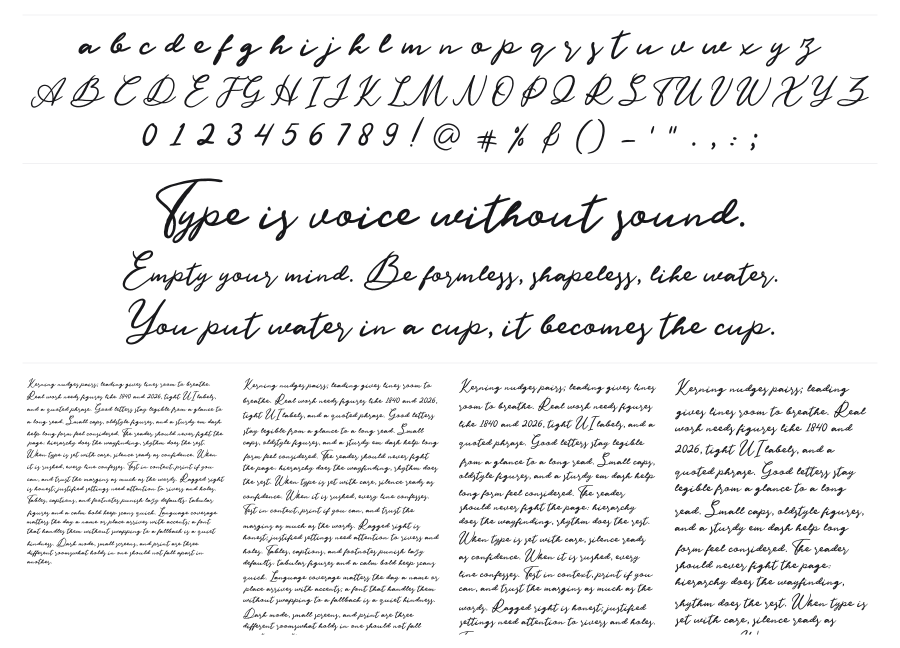 a b c d e f g h i j k l m n o p q r s t u v w x y z
A B C D E F G H I J K L M N O P Q R S T U V W X Y Z
0 1 2 3 4 5 6 7 8 9 ! @ # % $ ( ) - ' " . , : ;
Type is voice without sound.
Empty your mind. Be formless, shapeless, like water.
You put water in a cup, it becomes the cup.
Kerning nudges pairs; leading gives lines room to breathe.
Real work needs figures like 1840 and 2026, tight UI labels,
and a quoted phrase. Good letters stay legible from a glance to
a long read. Small caps, oldstyle figures, and a sturdy em dash
help long form feel considered. The reader should never fight the
page: hierarchy does the wayfinding, rhythm does the rest.
When type is set with care, silence reads as confidence. When
it is rushed, every line confesses. Test in context, print if you
can, and trust the margins as much as the words. Ragged right
is honest; justified settings need attention to rivers and holes.
Tables, captions, and footnotes punish lazy defaults. tabular
figures and a calm bold keep scans quick. Language coverage
matters the day a name or place arrives with accents; a font
that handles them without swapping to a fallback is a quiet
kindness. Dark mode, small screens, and print are three
different roomswhat holds in one should not fall apart in
another.
Kerning nudges pairs; leading gives lines room to
breathe. Real work needs figures like 1840 and 2026,
tight UI labels, and a quoted phrase. Good letters
stay legible from a glance to a long read. Small
caps, oldstyle figures, and a sturdy em dash help long
form feel considered. The reader should never fight
the page: hierarchy does the wayfinding, rhythm does
the rest. When type is set with care, silence reads as
confidence. When it is rushed, every line confesses.
Test in context, print if you can, and trust the
margins as much as the words. Ragged right is
honest; justified settings need attention to rivers and
holes. Tables, captions, and footnotes punish lazy
defaults. tabular figures and a calm bold keep scans
quick. Language coverage matters the day a name or
place arrives with accents; a font that handles them
without swapping to a fallback is a quiet kindness.
Dark mode, small screens, and print are three
different roomswhat holds in one should not fall
Kerning nudges pairs; leading gives lines
room to breathe. Real work needs figures
like 1840 and 2026, tight UI labels, and a
quoted phrase. Good letters stay legible
from a glance to a long read. Small caps,
oldstyle figures, and a sturdy em dash help
long form feel considered. The reader
should never fight the page: hierarchy
does the wayfinding, rhythm does the rest.
When type is set with care, silence reads
as confidence. When it is rushed, every
line confesses. Test in context, print if you
can, and trust the margins as much as the
words. Ragged right is honest; justified
settings need attention to rivers and holes.
Kerning nudges pairs; leading
gives lines room to breathe. Real
work needs figures like 1840 and
2026, tight UI labels, and a
quoted phrase. Good letters stay
legible from a glance to a long
read. Small caps, oldstyle figures,
and a sturdy em dash help long
form feel considered. The reader
should never fight the page:
hierarchy does the wayfinding,
rhythm does the rest. When type is
set with care, silence reads as